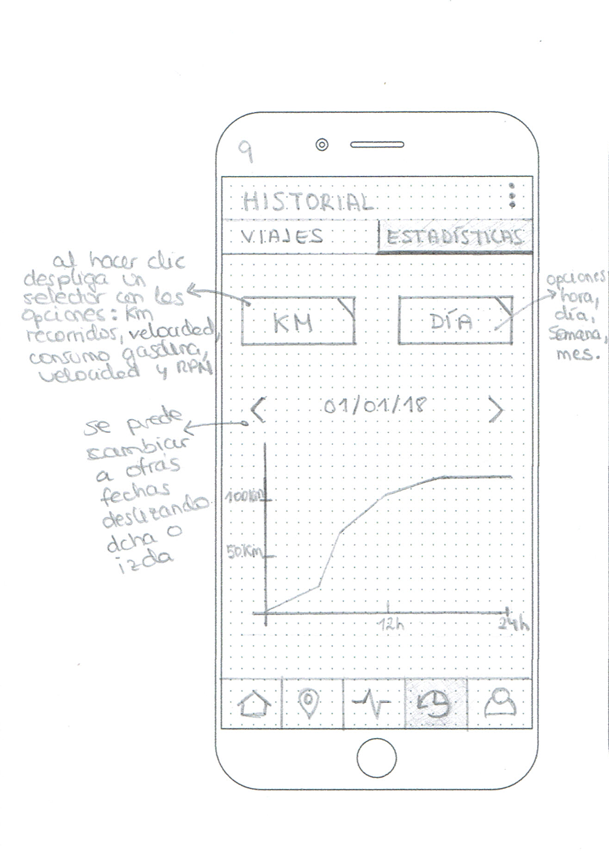 9
HISTORIAL
VIAJES
ESTADÍSTICAS
al hacer clic
despliga un
selector con las
opciones: Km
recorridos, velocidad,
consumo gasolina,
velocidad y RPM
KM
DÍA
opciones
hora,
día,
semana,
mes.
01/01/18
se puede
cambiar
a otras
fechas
deslizando
dcha o
izda
100Km
50Km
12h
24h